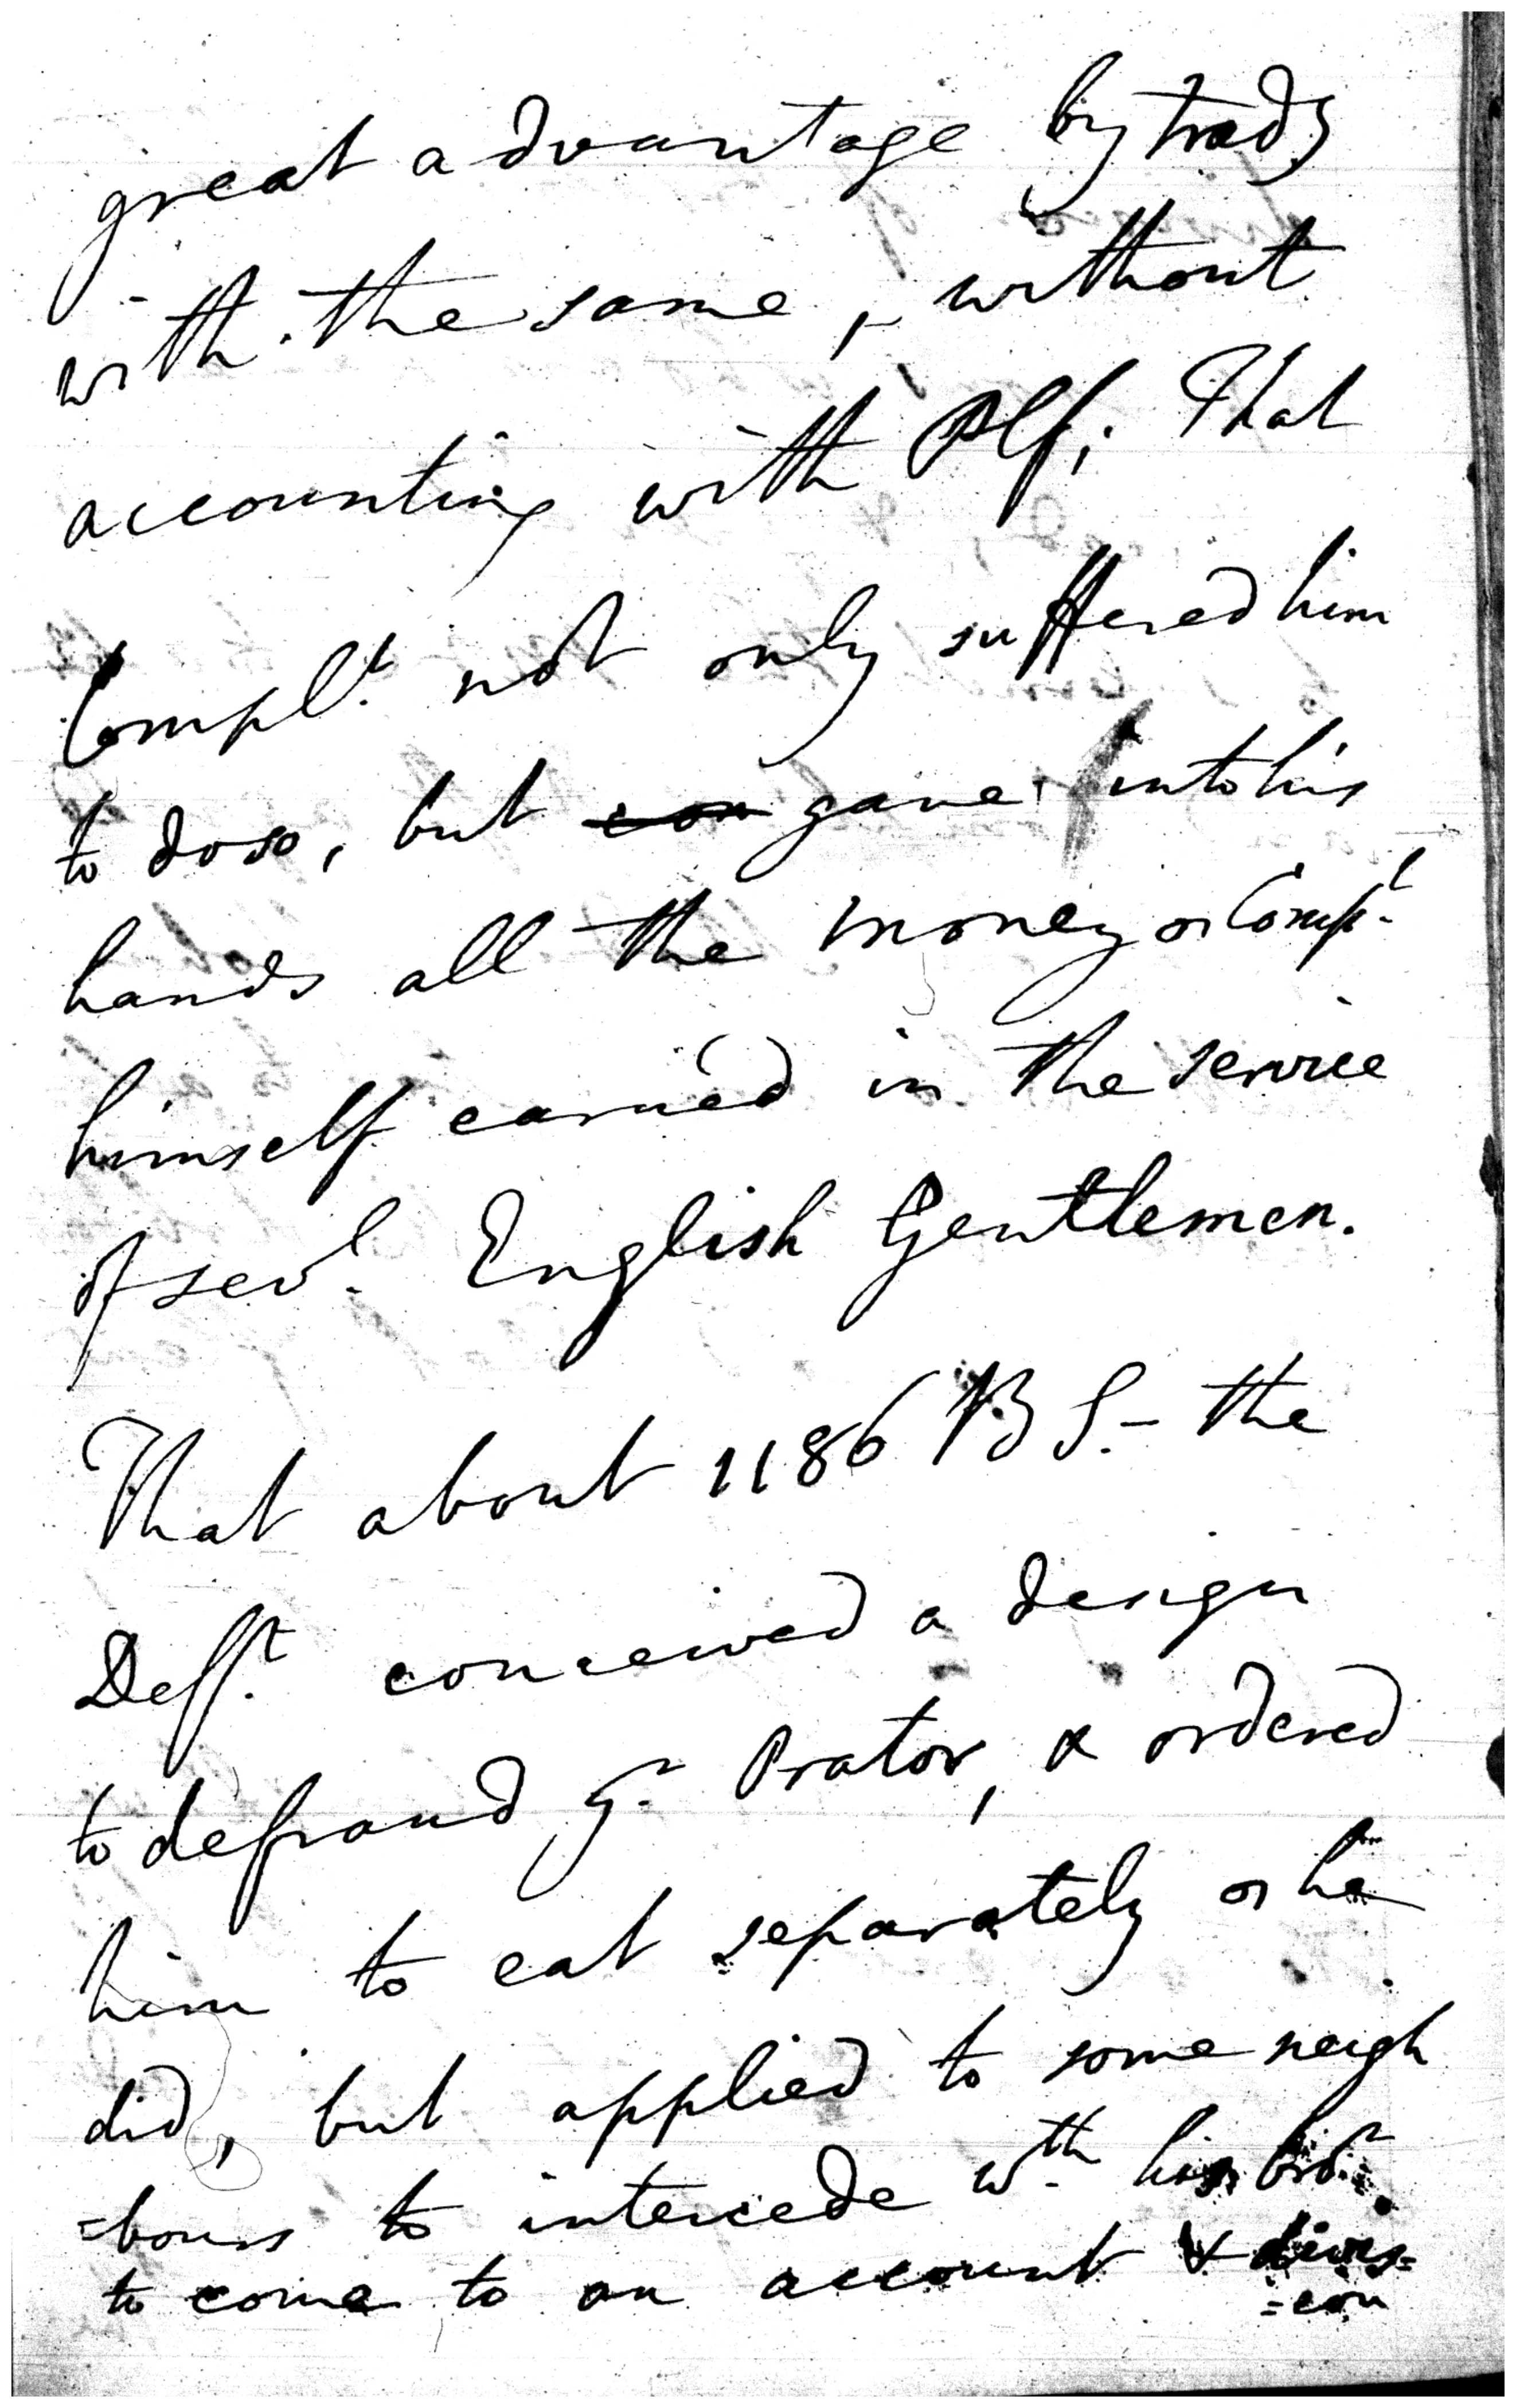 great advantage by tradg
with the same, without
accounting with Plf; That
Complt. not only suffered him
to do so, but con gave into his
hands all the money or Compt.
himself earned in the service
of sevl. English Gentlemen.
That about 1186 BS. - the
Defft. conceived a design
to defraud yr. Orator, & ordered
him to eat separately or he
did, but applied to some neigh
=bours to intercede wth. his bror.
to come to an account & divis=
=ion